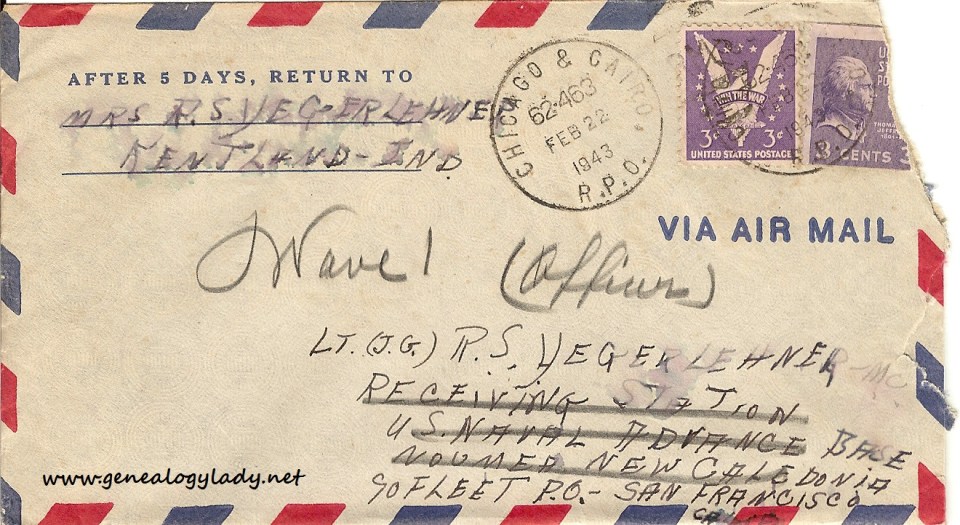 AFTER 5 DAYS, RETURN TO
MRS R.S. YEGERLEHNER
KENTLAND-IND
CHICAGO & CAIRO.
62-463
FEB 22
1943
R.P.O.
WIN THE WAR
3¢ 3¢
UNITED STATES POSTAGE
1943
THOMAS
JEFFER
3 CENTS 3
VIA AIR MAIL
(Officer)
LT. (J.G.) R.S. YEGERLEHNER-MC.
RECEIVING STATION
U.S. NAVAL ADVANCE BASE
NOUMEA NEW CALEDONIA
℅ FLEET P.O.- SAN FRANCISCO
www.genealogylady.net